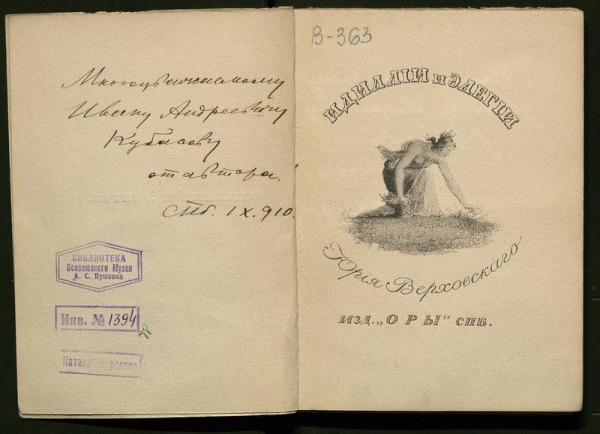 Многоуважаемому
Ивану Андреевичу
Кубасову
от автора.
Спб. IX.910.
БИБЛИОТЕКА
Всесоюзного Музея
А. С. Пушкина
Инв. № 1394
В-363
ИДИЛЛІИ и ЭЛЕГІИ
Юрія Верховскаго
ИЗД. „ОРЫ“ СПБ.